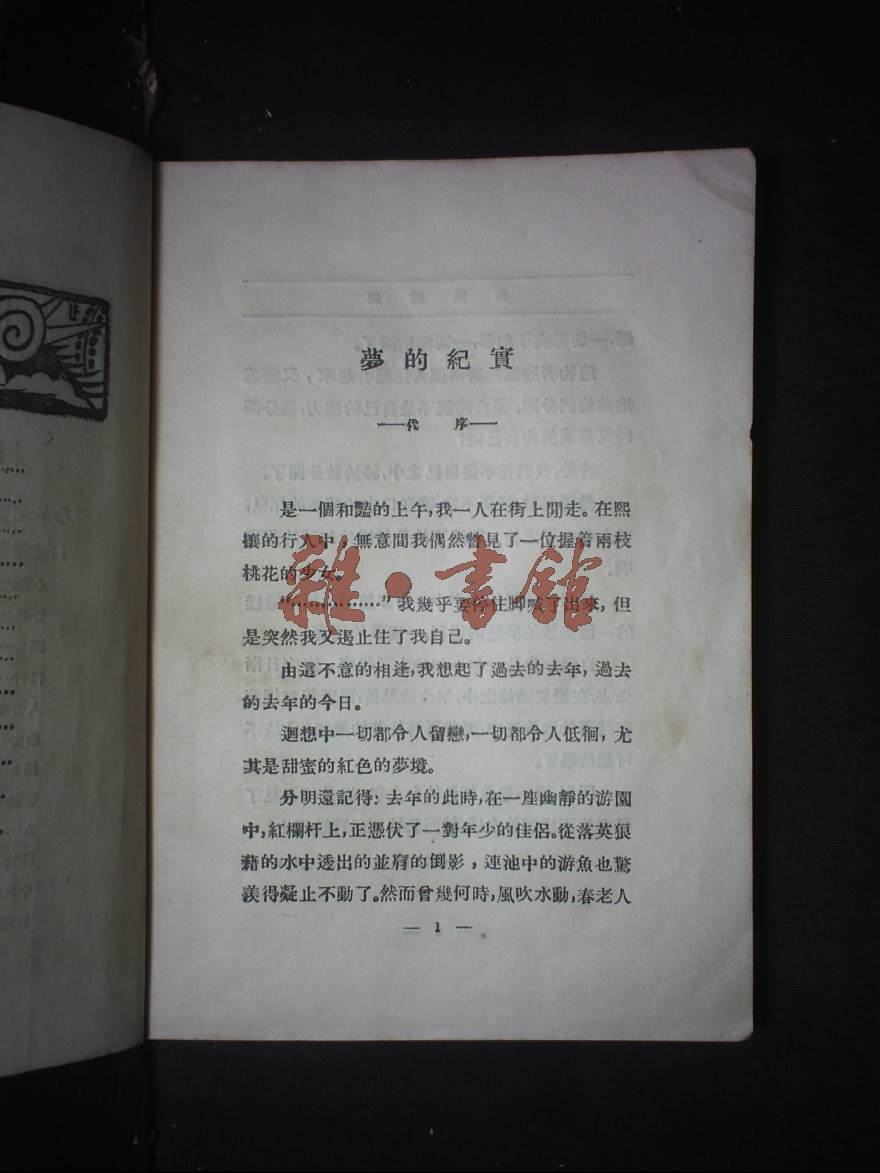 夢的紀實
——代 序——
是一個和豔的上午,我一人在街上閒走。在熙
攘的行人中,無意間我偶然瞥見了一位握着兩枝
桃花的少女。
“……………”我幾乎要停住脚喊了出來,但
是突然我又遏止住了我自己。
由這不意的相逢,我想起了過去的去年,過去
的去年的今日。
迴想中一切都令人留戀,一切都令人低徊,尤
其是甜蜜的紅色的夢境。
分明還記得:去年的此時,在一座幽靜的游園
中,紅欄杆上,正憑伏了一對年少的佳侶。從落英狼
藉的水中透出的並肩的倒影,連池中的游魚也驚
羡得凝止不動了。然而曾幾何時,風吹水動,春老人
— 1 —
雜·書館